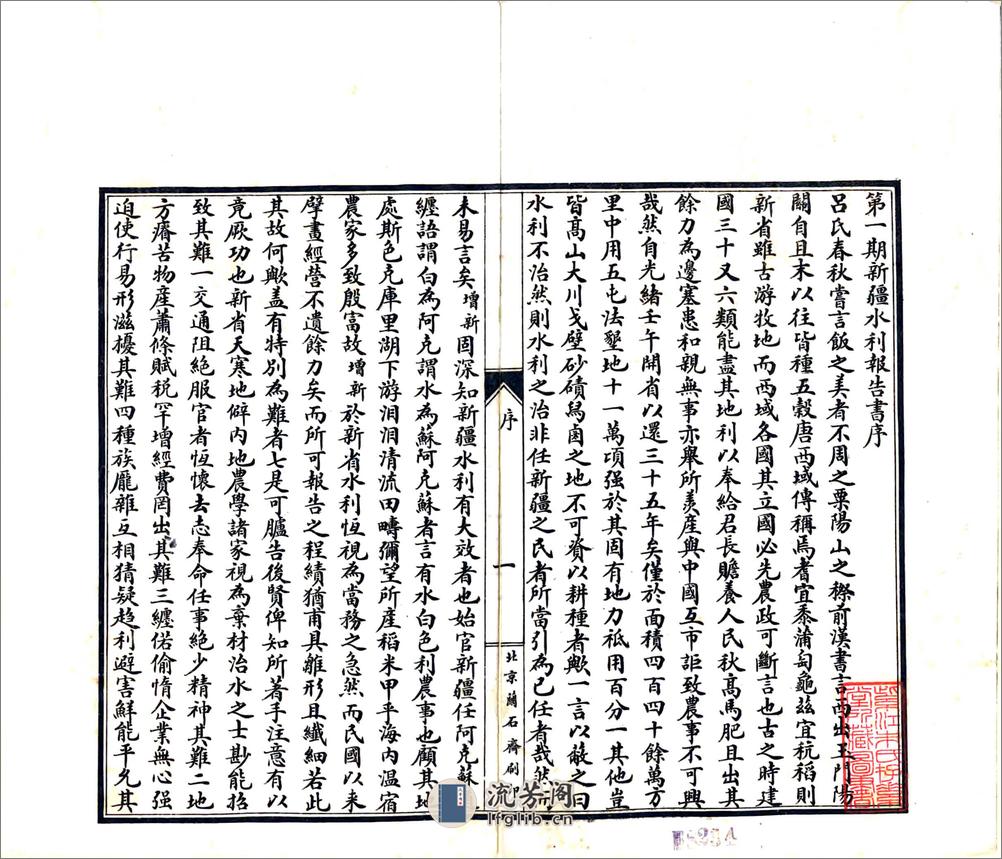 第一期新疆水利報告書序
呂氏春秋嘗言飯之美者不周之粟陽山之穄前漢書言西出玉門陽
關自且末以往皆種五穀唐西域傳稱焉耆宜黍蒲甸龜茲宜杭稻則
新省雖古游牧地而西域各國其立國必先農政可斷言也古之時建
國三十又六類能盡其地利以奉給君長贍養人民秋高馬肥且出其
餘力為邊塞患和親無事亦舉所羨產與中國互市詎致農事不可興
哉然自光緒壬午開省以還三十五年矣僅於面積四百四十餘萬方
里中用五屯法墾地十一萬頃强於其固有地力祇用百分一其他豈
皆高山大川戈壁砂磧舄鹵之地不可資以耕種者歟一言以蔽之曰
水利不治然則水利之治非任新疆之民者所當引為己任者哉然
序
一
北京蘭石齋刷印
未易言矣增新固深知新疆水利有大效者也始官新疆任阿克蘇
纏語謂白為阿克謂水為蘇阿克蘇者言有水白色利農事也顧其地
處斯色克庫里湖下游泪泪清流田疇彌望所產稻米甲乎海內温宿
農家多致殷富故增新於新省水利恆視為當務之急然而民國以來
擘畫經營不遺餘力矣而所可報告之程績猶甫具雛形且纖細若此
其故何歟盖有特別為難者七是可臚告後賢俾知所著手注意有以
竟厥功也新省天寒地僻內地農學諸家視為棄材治水之士尠能招
致其難一交通阻絕服官者恆懷去志奉命任事絕少精神其難二地
方瘠苦物產蕭條賦税罕增經費罔出其難三纏偌偷惰企業無心强
迫使行易形滋擾其難四種族龎雜互相猜疑趋利避害鮮能平允其
流芳阁
lfglib.cn